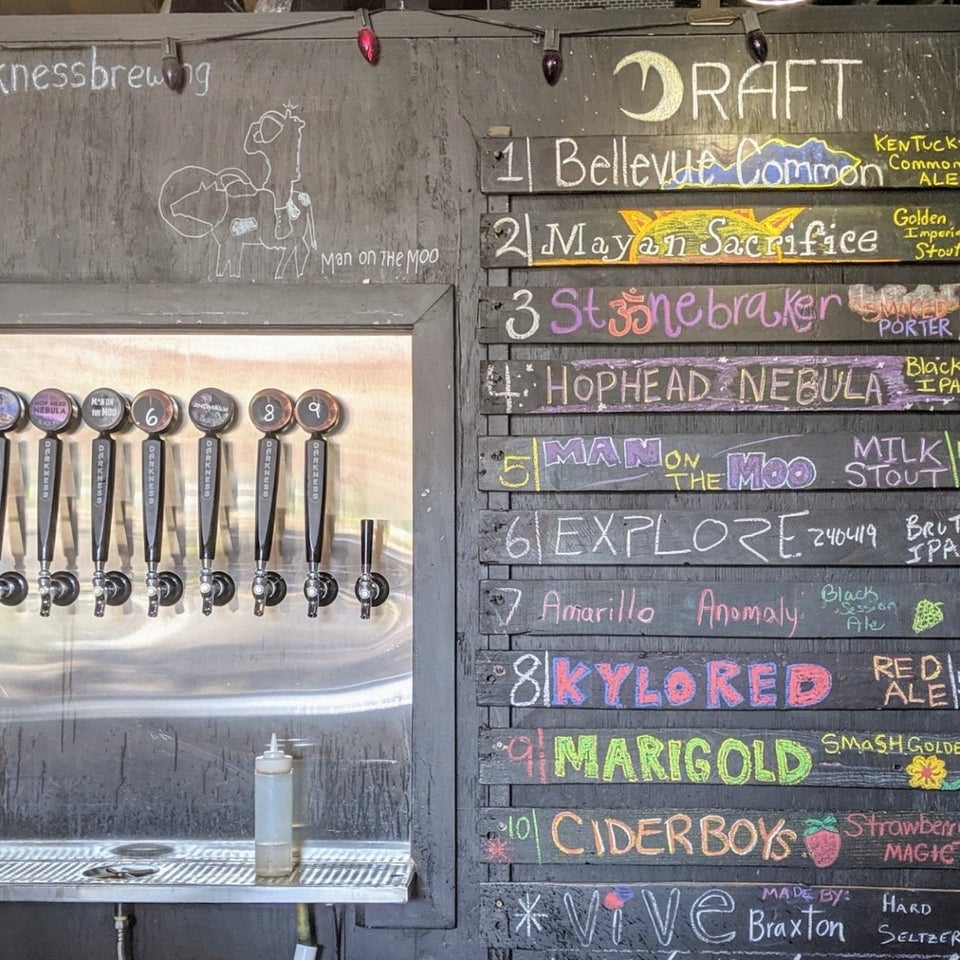 knessbrewing
Man on the Moo
DRAFT
1 Bellevue Common Kentuck
Common
Ale
2 Mayan Sacrifice Golden
Imperia
Stout
3 Stonebraker Smoked
PORTER
4 HOPHEAD NEBULA Black
IPA
5 MAN ON THE MOO MILK
STOUT
6 EXPLORE 240419 BRUT
IPA
7 Amarillo Anomaly Black
Session
Ale
8 KYLO RED RED
ALE
9 MARIGOLD SMaSH GOLDE
10 CIDERBOYS Strawberr
MAGIC
* ViVe MADE BY:
Braxton
HARD
SELTZER
HOP HEAD
NEBULA
MAN ON
THE MOO
6
ANOMALY
8
9
DARKNESS
DARKNESS
DARKNESS
DARKNESS
DARKNESS
DARKNESS